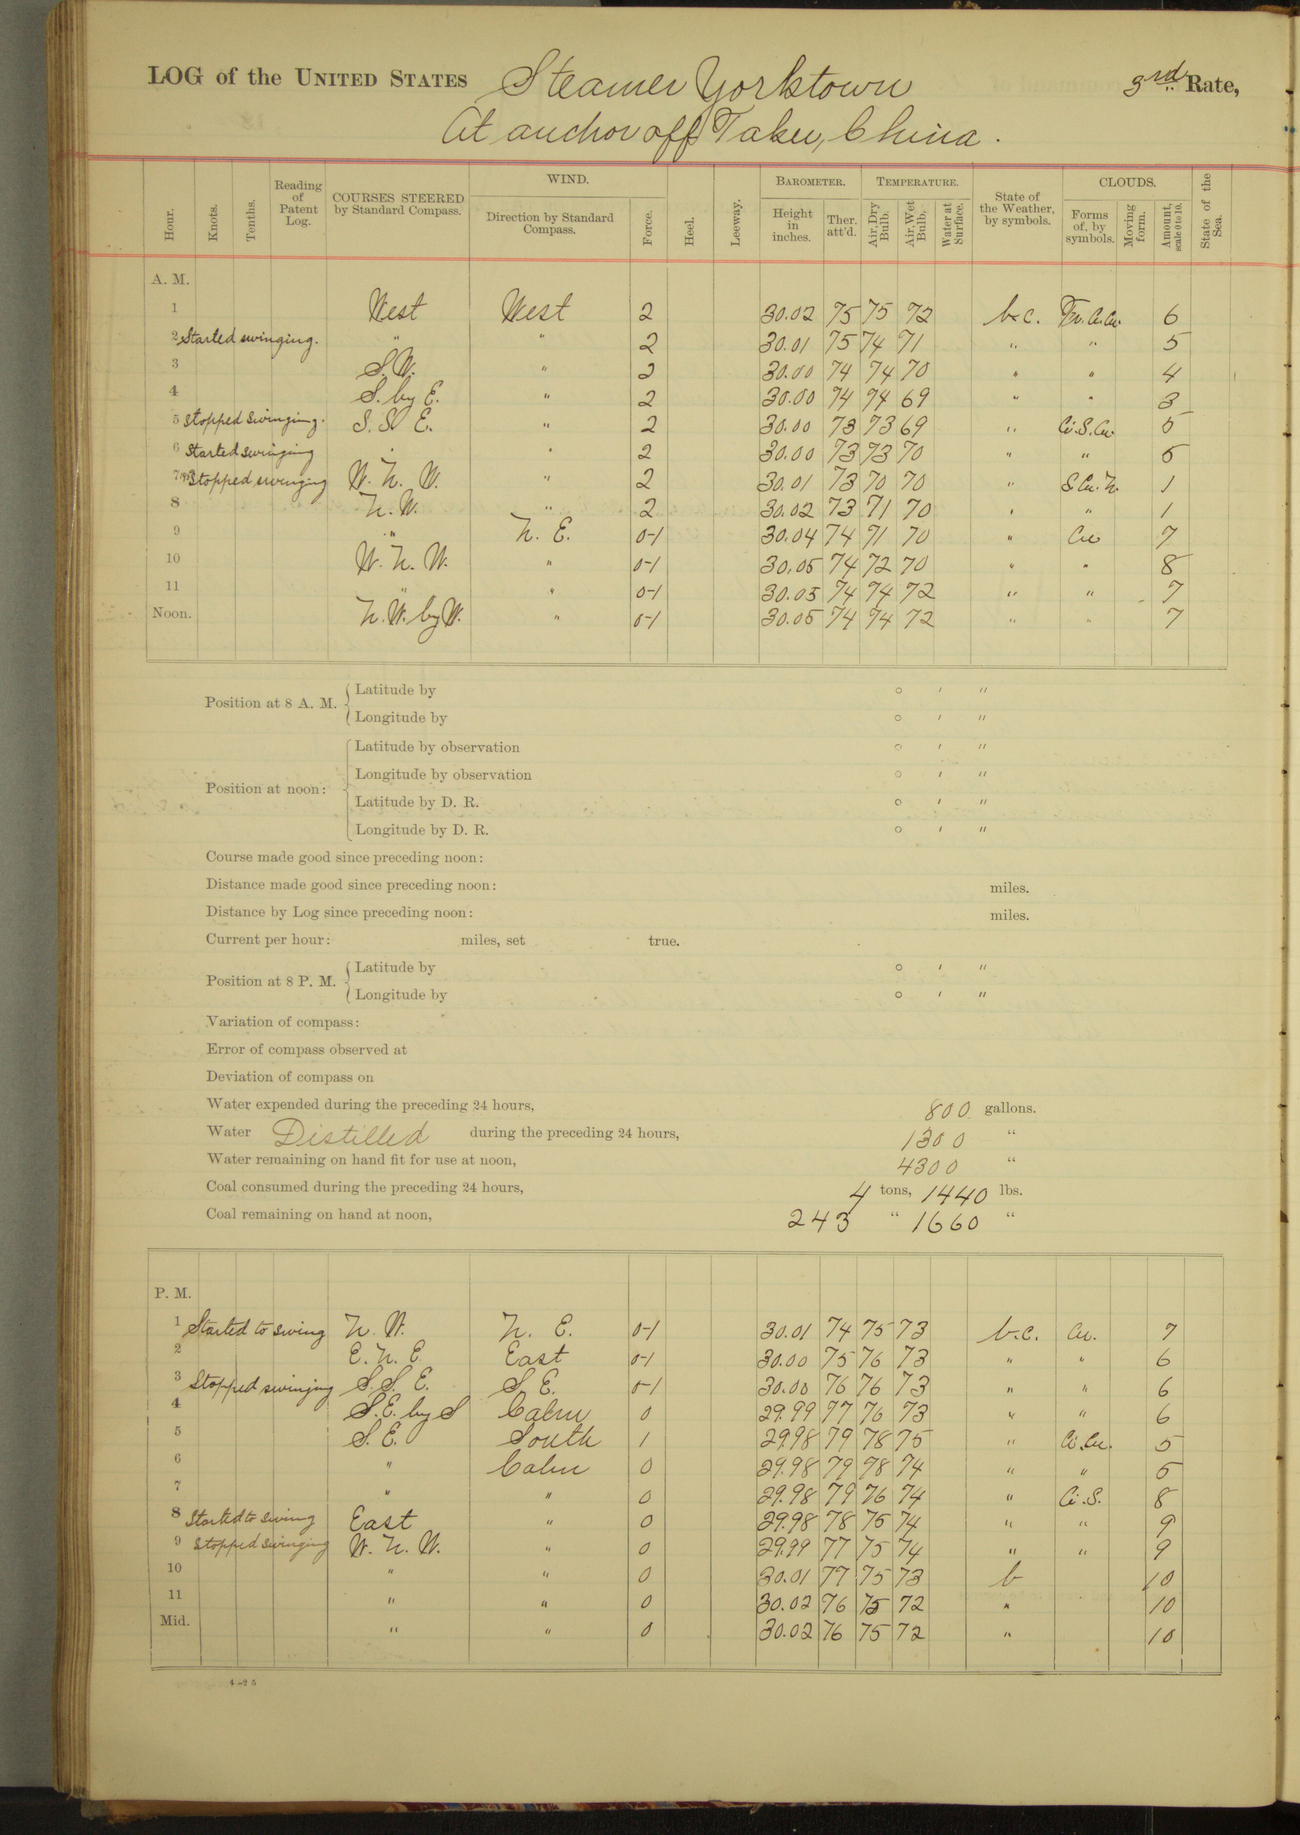 LOG of the UNITED STATES Steamer Yorktown 3rd Rate,
At anchor off Taku, China.
Hour. Knots. Tenths. Reading of Patent Log. COURSES STEERED by Standard Compass. WIND. Direction by Standard Compass. Force. Heel. Leeway. BAROMETER. Height in inches. Ther. att'd. TEMPERATURE. Air, Dry Bulb. Air, Wet Bulb. Water at Surface. State of the Weather, by symbols. CLOUDS. Forms of, by symbols. Moving form. Amount, scale 0 to 10. State of the Sea.
A. M.
1 West West 2 30.02 75 75 72 b.c. 6
2 Started swinging. " " 2 30.01 75 74 71 " " 5
3 S.W. " 2 30.00 74 74 70 " " 4
4 S. by E. " 2 30.00 74 74 69 " " 3
5 Stopped swinging. S. S. E. " 2 30.00 73 73 69 " Ci.S.Cu. 5
6 Started swinging " " 2 30.00 73 73 70 " " 5
7 Stopped swinging W. N. W. " 2 30.01 73 70 70 " S.Cu.N. 1
8 N. W. " 2 30.02 73 71 70 " " 1
9 " N. E. 0-1 30.04 74 71 70 " Cu 7
10 W. N. W. " 0-1 30.05 74 72 70 " " 8
11 " " 0-1 30.05 74 74 72 " " 7
Noon. N. W. by W. " 0-1 30.05 74 74 72 " " 7
Position at 8 A. M. Latitude by ° ' "
Longitude by ° ' "
Position at noon: Latitude by observation ° ' "
Longitude by observation ° ' "
Latitude by D. R. ° ' "
Longitude by D. R. ° ' "
Course made good since preceding noon:
Distance made good since preceding noon: miles.
Distance by Log since preceding noon: miles.
Current per hour: miles, set true.
Position at 8 P. M. Latitude by ° ' "
Longitude by ° ' "
Variation of compass:
Error of compass observed at
Deviation of compass on
Water expended during the preceding 24 hours, 800 gallons.
Water Distilled during the preceding 24 hours, 1300 "
Water remaining on hand fit for use at noon, 4300 "
Coal consumed during the preceding 24 hours, 4 tons, 1440 lbs.
Coal remaining on hand at noon, 243 " 1660 "
P. M.
1 Started to swing N. W. N. E. 0-1 30.01 74 75 73 b.c. Cu. 7
2 E. N. E. East 0-1 30.00 75 76 73 " " 6
3 Stopped swinging S. S. E. S. E. 0-1 30.00 76 76 73 " " 6
4 S.E. by S Calm 0 29.99 77 76 73 " " 6
5 S. E. South 1 29.98 79 78 75 " Ci.Cu. 5
6 " Calm 0 29.98 79 78 74 " " 5
7 " " 0 29.98 79 76 74 " Ci.S. 8
8 Started to swing East " 0 29.98 78 75 74 " " 9
9 Stopped swinging W. N. W. " 0 29.99 77 75 74 " " 9
10 " " 0 30.01 77 75 73 b 10
11 " " 0 30.02 76 75 72 " 10
Mid. " " 0 30.02 76 75 72 " 10
4-25